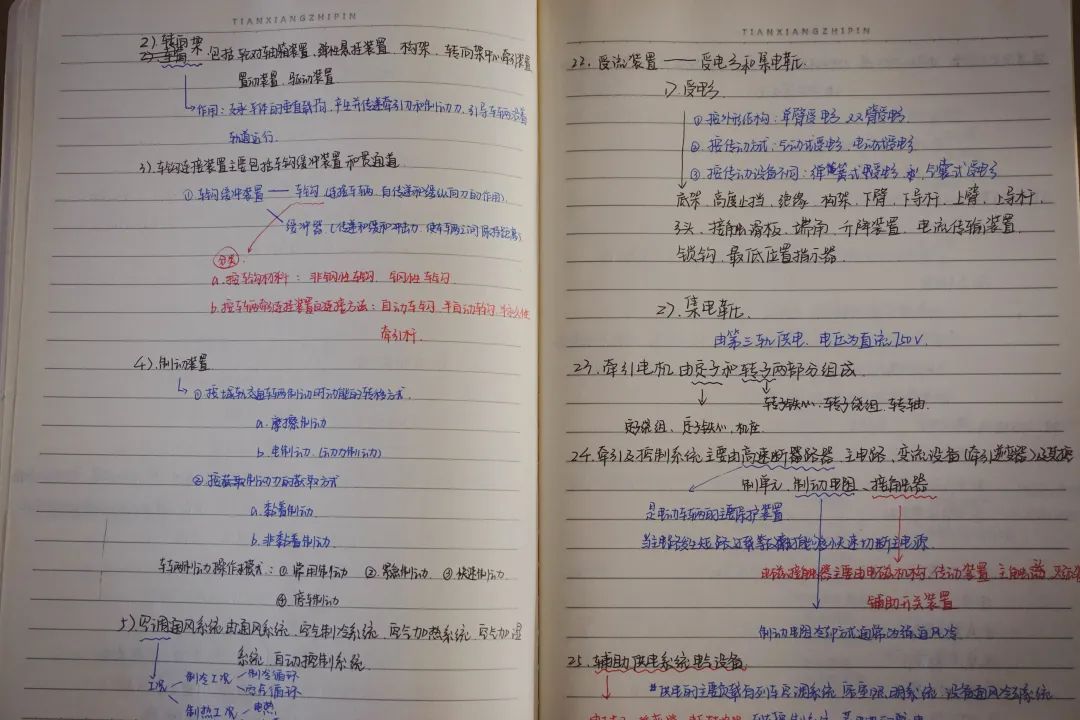 TIANXIANGZHIPIN
2) 转向架
包括轮对轴箱装置、弹性悬挂装置、构架、转向架中心牵引装置
置动装置、驱动装置
作用：支承车体的垂直载荷、产生并传递牵引力和制动力、引导车辆沿着
轨道运行.
3) 车钩连接装置主要包括车钩缓冲装置和贯通道
① 车钩缓冲装置 车钩 (连接车辆、自传递和缓纵向力的作用).
缓冲器 (传递和缓和冲击力、使车辆之间保持距离)
分类.
a. 按车钩材料： 非刚性车钩、刚性车钩
b. 按车辆牵引连接装置的连接方法：自动车钩、半自动车钩、半永久性
牵引杆.
4) 制动装置
① 按城轨交通车辆制动时动能的转移方式.
a. 摩擦制动
b. 电制动 (动力制动)
② 按获取制动力的获取方式
a. 黏着制动.
b. 非黏着制动.
车辆制动操作模式：① 常用制动 ② 紧急制动. ③ 快速制动.
④ 停车制动
5) 空调通风系统由通风系统、空气制冷系统、空气加热系统、空气加湿
系统、自动控制系统.
工况 制冷工况 制冷循环
空气循环
制热工况 电热
TIANXIANGZHIPIN
22. 受流装置 —— 受电弓和集电靴.
1) 受电弓
① 按外形结构：单臂受电弓、双臂受电弓
② 按传动方式：气动式受电弓、电动式受电弓
③ 按传动设备不同：弹簧式受电弓和气囊式受电弓
底架、高度止挡、绝缘、构架、下臂、下导杆、上臂、上导杆、
弓头、接触滑板、端角、升降装置、电流传输装置、
锁钩、最低位置指示器.
2). 集电靴.
由第三轨供电、电压为直流750V.
23. 牵引电机由定子和转子两部分组成.
转子铁心、转子绕组、转轴.
定子绕组、定子铁心、机座.
24. 牵引及控制系统主要由高速断路器、主电路、变流设备(牵引逆变器)及其控
制单元、制动电阻、接触器
是电动车辆的主要保护装置
当主电路发生短路、过载等故障时能快速切断主电源
电磁接触器主要由电磁机构、传动装置、主触头、灭弧
辅助开关装置
制动电阻冷却方式通常为强迫风冷.
25. 辅助供电系统电气设备
供电的主要负载有列车空调系统、客室照明系统、设备通风冷却系统